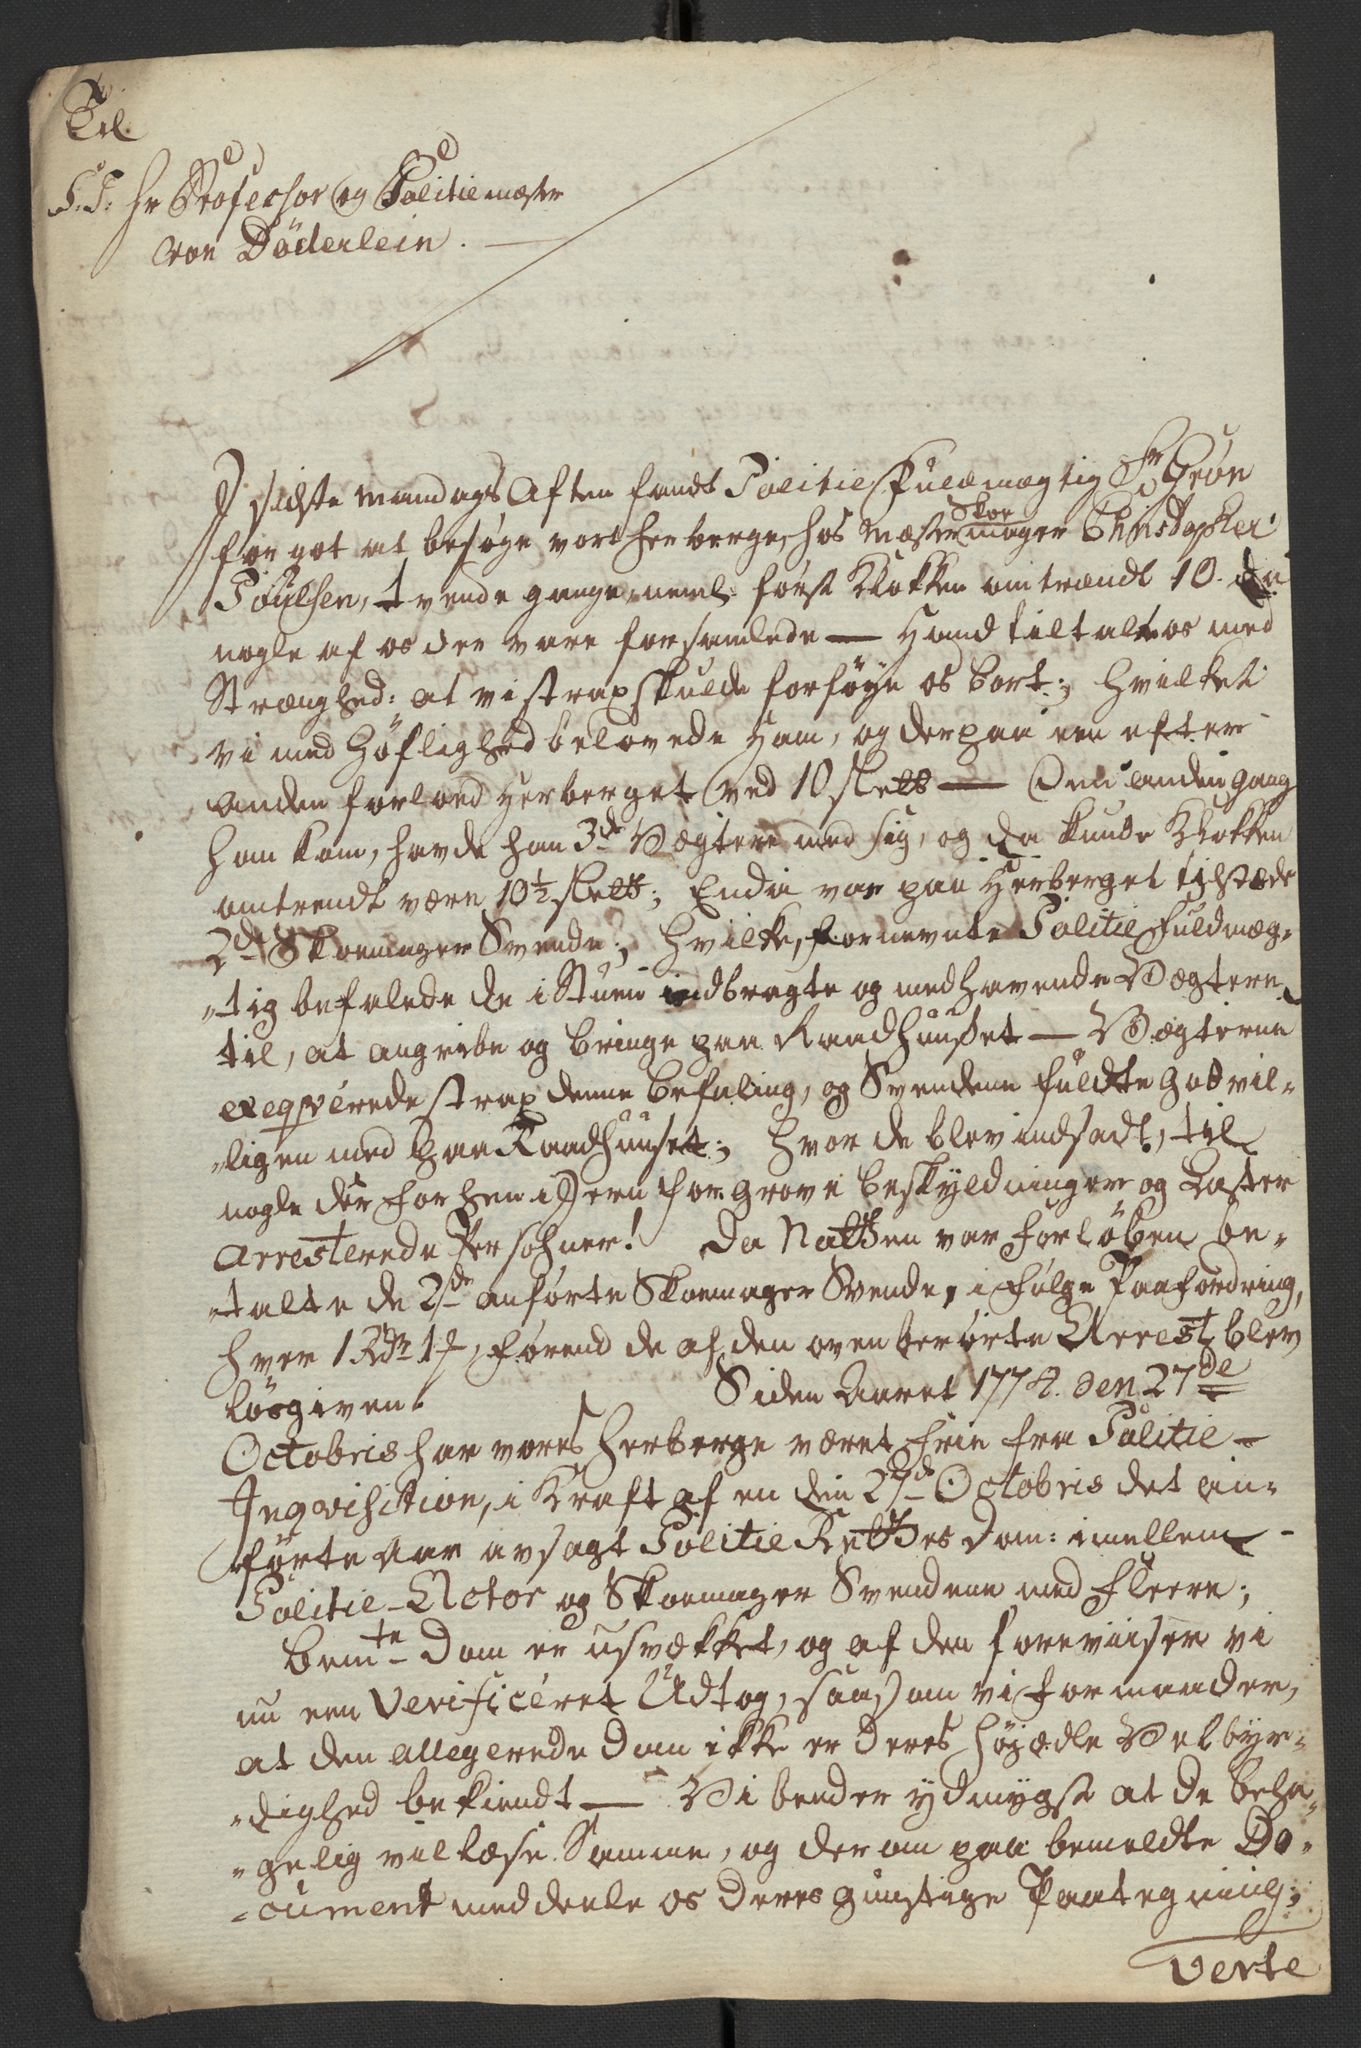 Til
S. T. Hr Professor og Politiemester
von Döderlein.
I sidste Mandags Aften fandt Politie Fuldmægtig Hr Grøn
for got at besøge vort Herberge, hos Mæster Skoemager Christopher
Poulsen, tvende gange, neml: først Klokken omtrendt 10. da
nogle af os der vare forsamlede — Hand tiltalte os med
Strænghed: at vi strax skulde forføye os bort; Hvilket
vi med Höflighed belovede Ham, og derpaa een efter
anden forloed Herberget ved 10 slett — Den anden gang
han kom, havde han 3de Vægtere med sig, og da kunde Klokken
omtrendt være 10½ slett; Enda var paa Herberget tilstæde
2de Skoemager Svende; Hvilke, fornevnte Politie Fuldmæg-
-tig befalede de i Stuen indbragte og medhavende Vægtere
til, at angribe og bringe paa Raadhuuset — Vægterne
exeqverede strax denne befaling, og Svendene fuldte godvil-
-ligen med paa Raadhuuset; Hvor de blev indsadt, til
nogle der forhen i Jern for grove beskyldninger og Laster
Arresterede Persohner! Da Natten var forløben be-
-talte de 2de anförte Skoemager Svende, i følge Paafordring,
hver 1 Rdr 1 ₰, förend de af den ovenberörte Arrest blev
lösgiven. Siden Aaret 1774. den 27de
Octobris har vores Herberge været frie fra Politie-
Inqvisition, i Kraft af en den 27de Octobris det an-
förte Aar avsagt Politie Rettes Dom: imellem
Politie-Actor og Skoemager Svendene med fleere;
Bemte Dom er usvækket, og af den foreviiser vi
nu een Verificeret Udtog, saasom vi formaader,
at den allegerede Dom ikke er Deres Høyædle Velbyr-
-dighed bekiendt — Vi beeder ydmygst at De beha-
-gelig vil læse Samme, og derom paa bemeldte Do-
-cument meddeele os Deres gunstige Paategning;
Verte